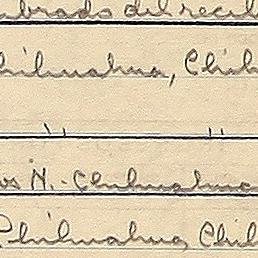 brado del recib
Chihuahua, Chih
" "
os N. - Chihuahua
Chihuahua, Chih